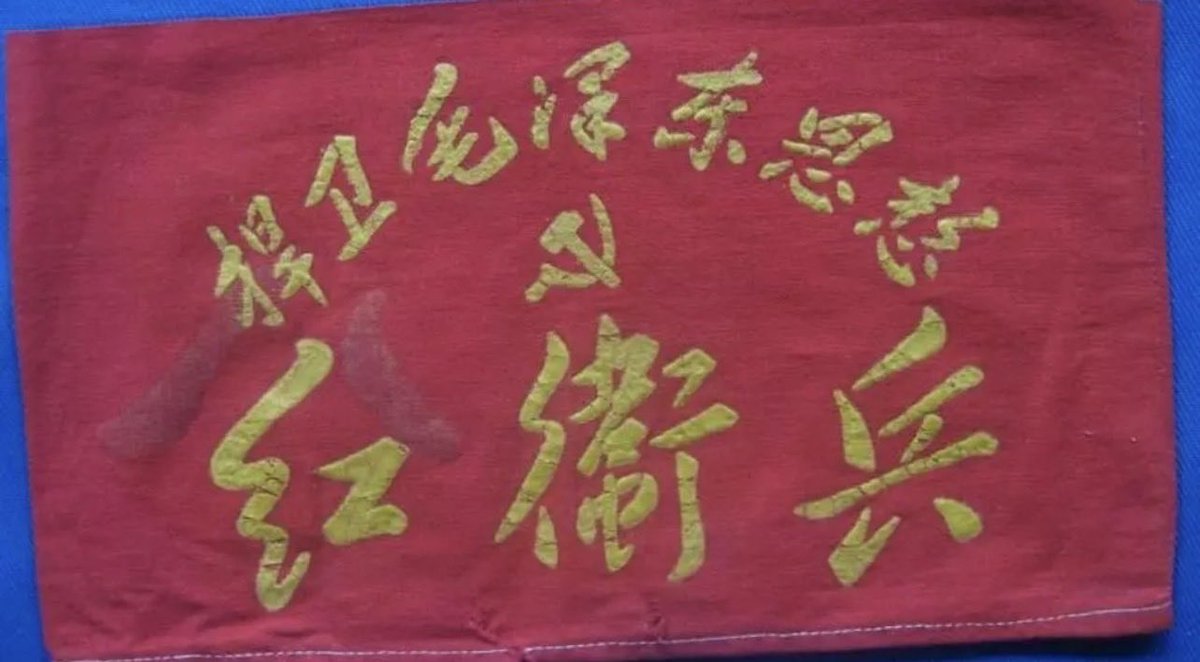 捍卫毛泽东思想
红衛兵